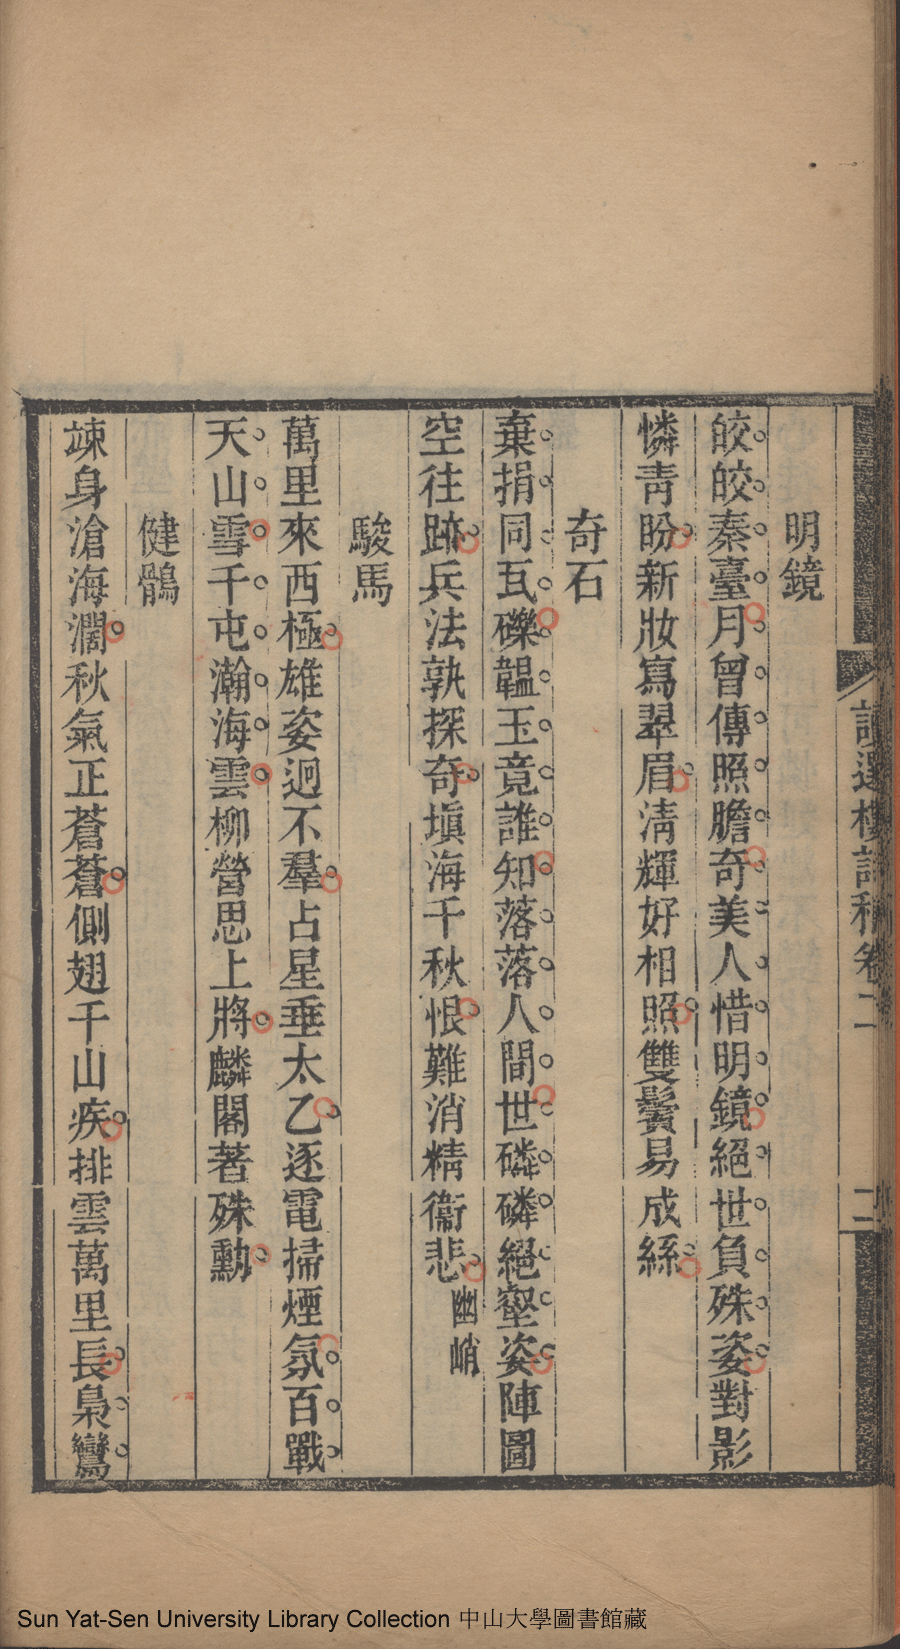 明鏡
皎皎秦臺月曾傳照膽奇美人惜明鏡絕世負殊姿對影
憐青盼新妝寫翠眉淸輝好相照雙鬢易成絲
奇石
棄捐同瓦礫韞玉竟誰知落落人間世磷磷絕壑姿陣圖
空往跡兵法孰探奇塡海千秋恨難消精衞悲幽峭
駿馬
萬里來西極雄姿迥不羣占星垂太乙逐電掃煙氛百戰
天山雪千屯瀚海雲柳營思上將麟閣著殊勳
健鶻
竦身滄海濶秋氣正蒼蒼側翅千山疾排雲萬里長梟鸞
讀選樓詩稿卷二
二
Sun Yat-Sen University Library Collection 中山大學圖書館藏